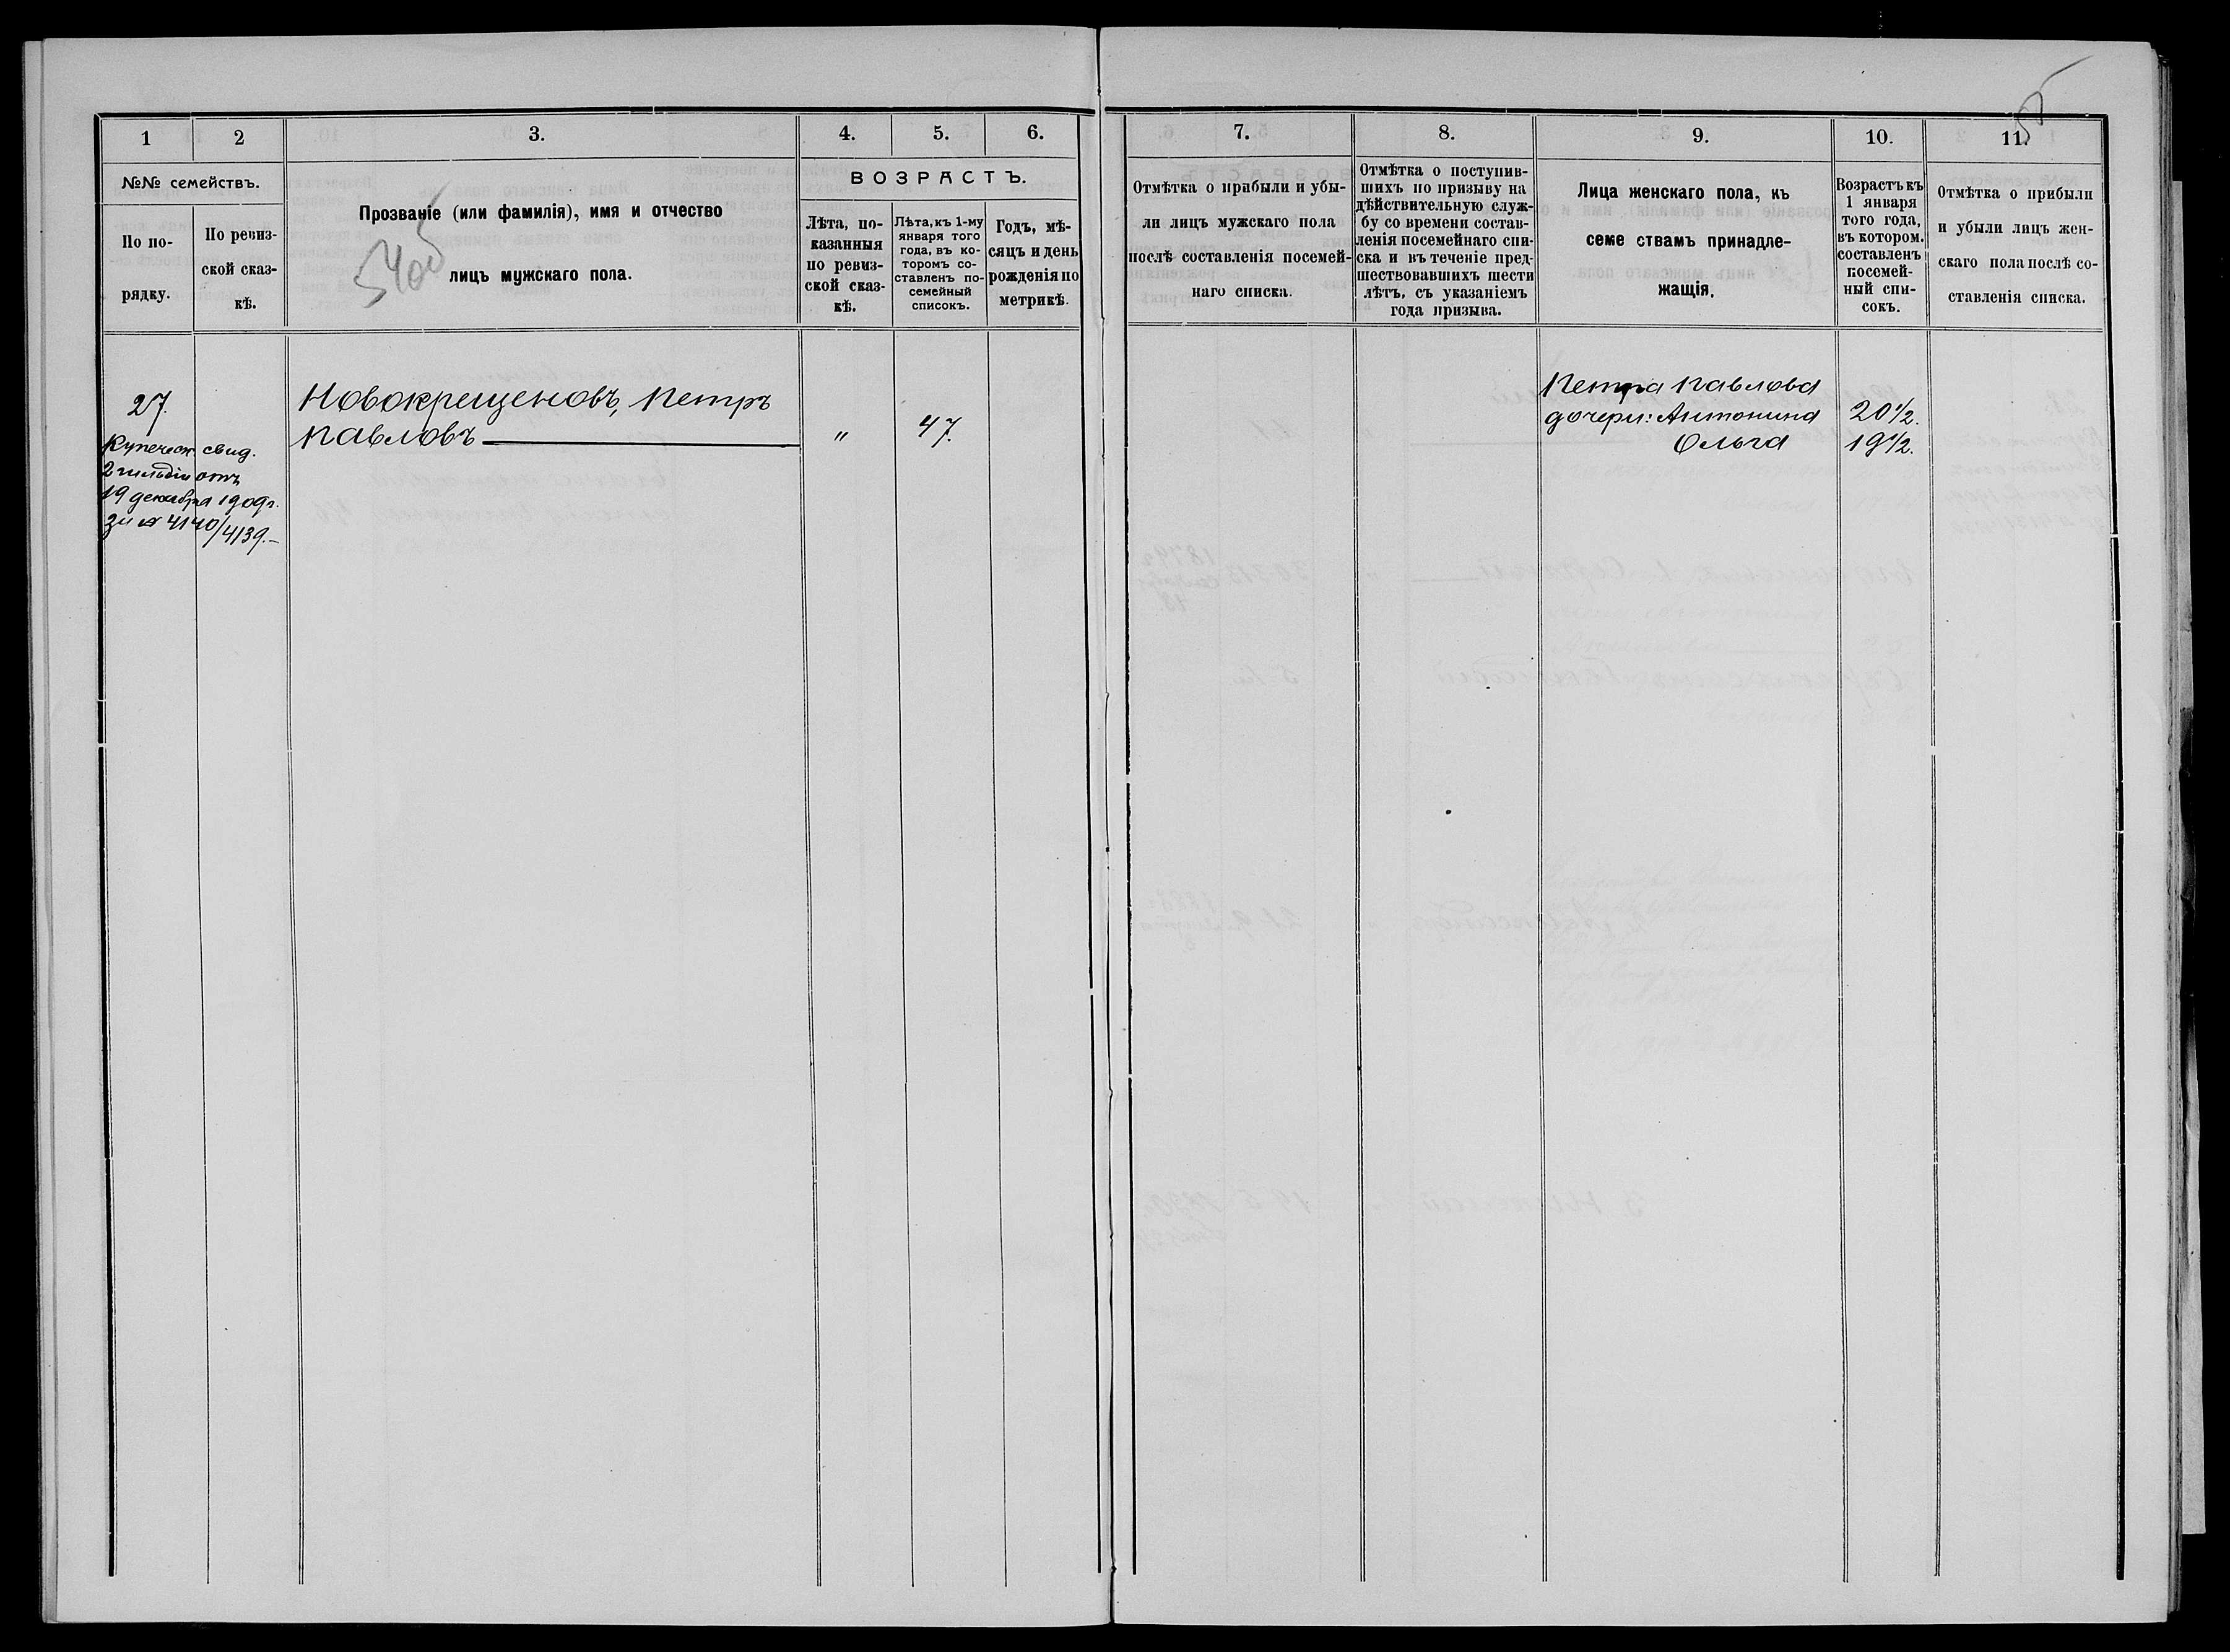 1
2
3.
4.
5.
6.
№№ семействъ.
По по-
рядку.
По ревиз-
ской сказ-
кѣ.
Прозваніе (или фамилія), имя и отчество
лицъ мужскаго пола.
ВОЗРАСТЪ.
Лѣта, по-
казанныя
по ревиз-
ской сказ-
кѣ.
Лѣта, къ 1-му
января того
года, въ ко-
торомъ со-
ставленъ по-
семейный
списокъ.
Годъ, мѣ-
сяцъ и день
рожденія по
метрикѣ.
27.
Купеческ. свид.
2 гильдіи отъ
19 декабря 1909г.
за № 4140/4139.-
Новокрещеновъ, Петръ
Павловъ
"
47.
7.
8.
9.
10.
11.
Отмѣтка о прибыли и убы-
ли лицъ мужскаго пола
послѣ составленія посемей-
наго списка.
Отмѣтка о поступив-
шихъ по призыву на
дѣйствительную служ-
бу со времени состав-
ленія посемейнаго спи-
ска и въ теченіе пред-
шествовавшихъ шести
лѣтъ, съ указаніемъ
года призыва.
Лица женскаго пола, къ
семе ствамъ принадле-
жащія.
Возрастъ къ
1 января
того года,
въ котором.
составленъ
посемей-
ный спи-
сокъ.
Отмѣтка о прибыли
и убыли лицъ жен-
скаго пола послѣ со-
ставленія списка.
Петра Павлова
дочери: Антонина 20 1/2.
Ольга 19 1/2.